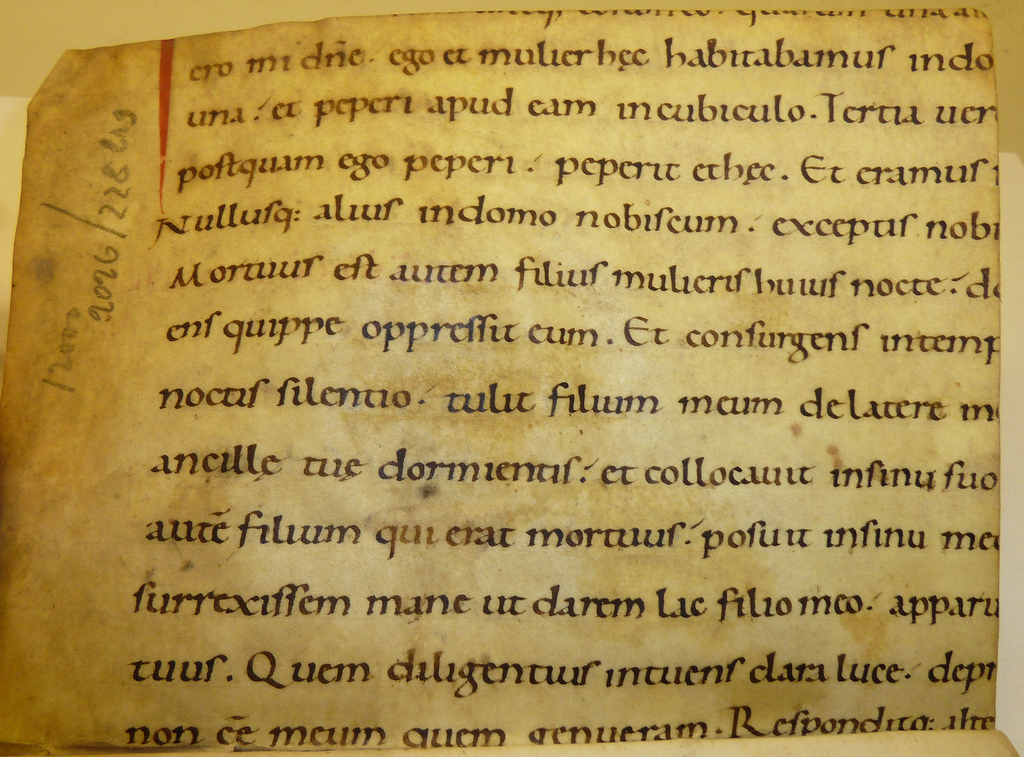 ero mi dñe. ego et mulier hęc habitabamus in do
una. et peperi apud eam in cubiculo. Tertia uer
postquam ego peperi. peperit et hęc. Et eramus
Nullusq: alius in domo nobiscum. exceptis nobi
Mortuus est autem filius mulieris huius nocte. do
ens quippe oppressit eum. Et consurgens in temp
noctis silentio. tulit filium meum de latere m
ancillę tuę dormientis. et collocauit in sinu suo
autē filium qui erat mortuus. posuit in sinu me
surrexissem mane ut darem lac filio meo. apparu
tuus. Quem diligentius intuens clara luce. depr
non eē meum quem genueram. Responditq: alte
2026/228 Lag